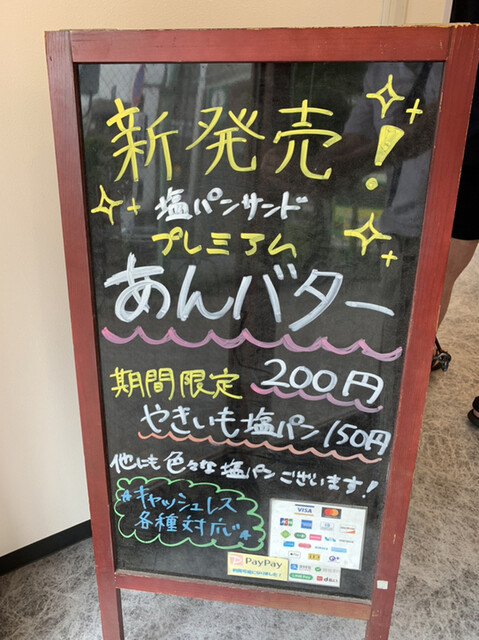 新発売!
塩パンサンド
プレミアム
あんバター
200円
期間限定
やきいも塩パン150円
他にも色々な塩パンございます!
キャッシュレス
各種対応
VISA
PayPay